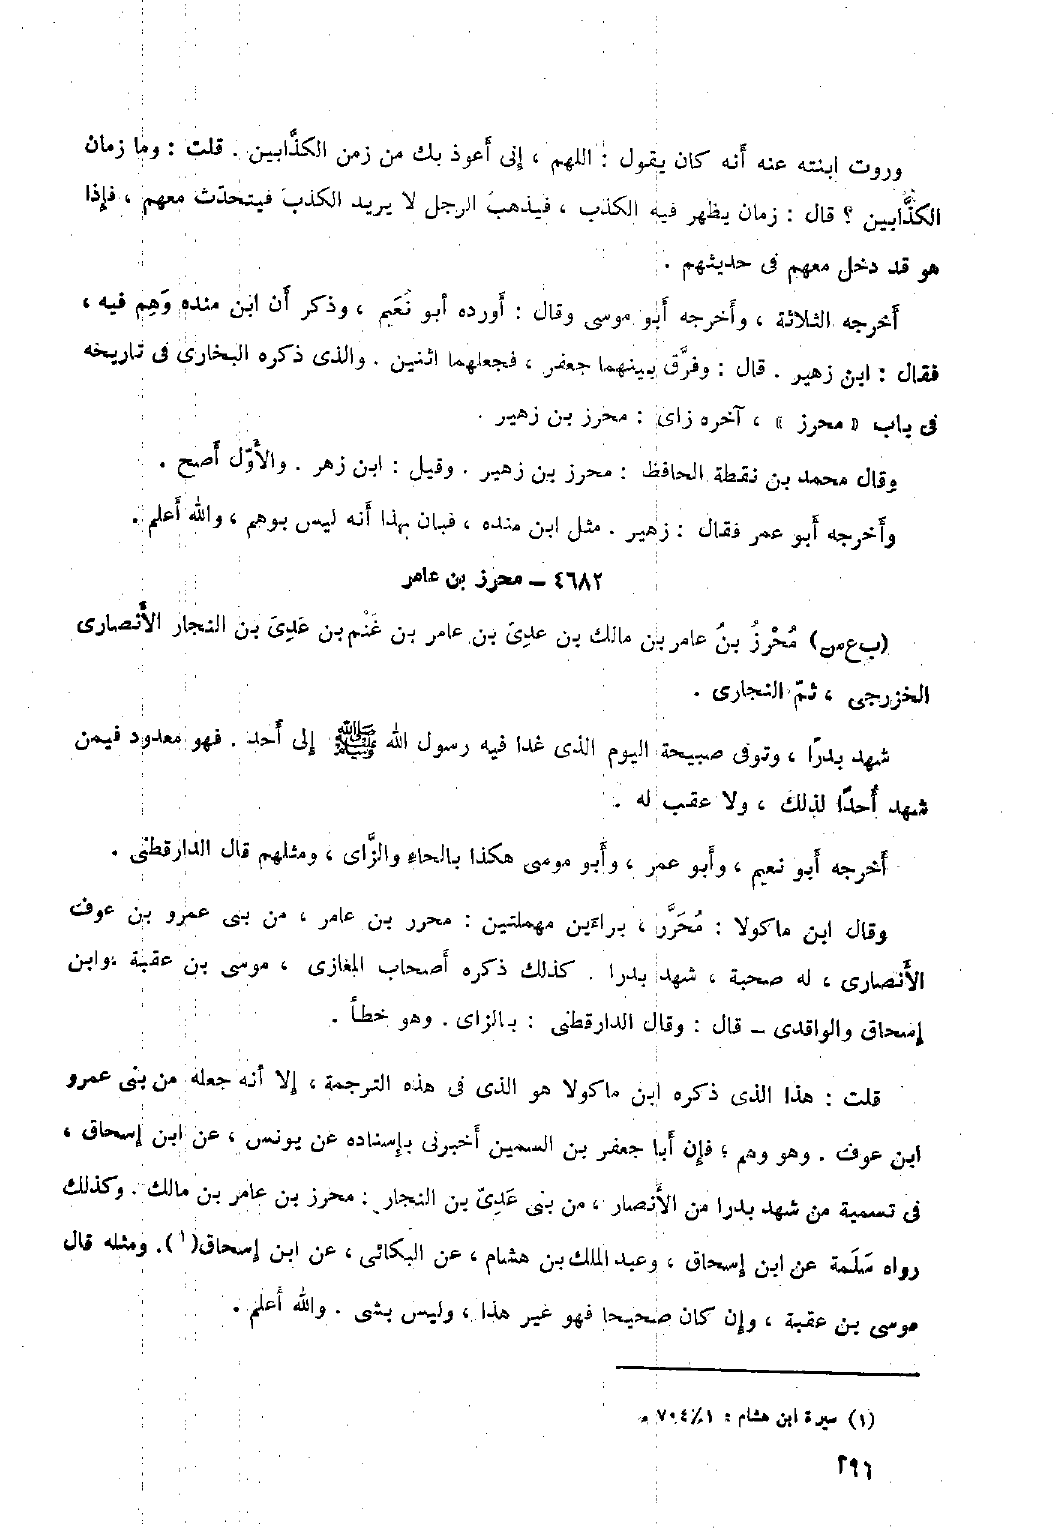 وروت ابنته عنه أَنه كان يقول : اللهم ، إنى أَعوذ بك من زمن الكذَّابين . قلت : وما زمان
الكذَّابين ؟ قال : زمان يظهر فيه الكذب ، فيذهبَ الرجل لا يريد الكذبَ فيتحدّث معهم ، فإِذا
هو قد دخل معهم فى حديثهم .
أَخرجه الثلاثة ، وأَخرجه أَبو موسى وقال : أَورده أبو نُعَيم ، وذكر أَن ابن منده وَهِم فيه ،
فقال : ابن زهير . قال : وفرَّق بينهما جعفر ، فجعلهما اثنين . والذى ذكره البخارى فى تاريخه
فى باب « محرز » ، آخره زاى : محرز بن زهير .
وقال محمد بن نقطة الحافظ : محرز بن زهير . وقيل : ابن زهر . والأَوّل أَصح .
وأَخرجه أَبو عمر فقال : زهير . مثل ابن منده ، فبان بهذا أَنه ليس بوهم ، والله أَعلم .
٤٦٨٢ – محرز بن عامر
(ب ع س) مُحْرِزُ بنُ عامر بن مالك بن عدِىّ بن عامر بن غَنْم بن عَدِىّ بن النجار الأَنصارى
الخزرجى ، ثمّ النجارى .
شهد بدرًا ، وتوفى صبيحة اليوم الذى غدا فيه رسول الله ﷺ إلى أُحد . فهو معدود فيمن
شهد أُحدًا لذلك ، ولا عقب له .
أَخرجه أَبو نعيم ، وأَبو عمر ، وأَبو موسى هكذا بالحاءِ والزَّاى ، ومثلهم قال الدارقطنى .
وقال ابن ماكولا : مُحَرَّر ، براءَين مهملتين : محرر بن عامر ، من بنى عمرو بن عوف
الأَنصارى ، له صحبة ، شهد بدرا . كذلك ذكره أصحاب المغازى ، موسى بن عقبة ، وابن
إسحاق والواقدى – قال : وقال الدارقطنى : بالزاى . وهو خطأ .
قلت : هذا الذى ذكره ابن ماكولا هو الذى فى هذه الترجمة ، إلا أنه جعله من بنى عمرو
ابن عوف . وهو وهم ؛ فإِن أَبا جعفر بن السمين أَخبرنى بإِسناده عن يونس ، عن ابن إِسحاق ،
فى تسمية من شهد بدرا من الأَنصار ، من بنى عَدِىّ بن النجار : محرز بن عامر بن مالك . وكذلك
رواه سَلَمة عن ابن إِسحاق ، وعبد الملك بن هشام ، عن البكائى ، عن ابن إِسحاق(١). ومثله قال
موسى بن عقبة ، وإِن كان صحيحا فهو غير هذا ، وليس بشى . والله أعلم .
(١) سيرة ابن هشام : ١/٧٠٤ .
٢٩٦